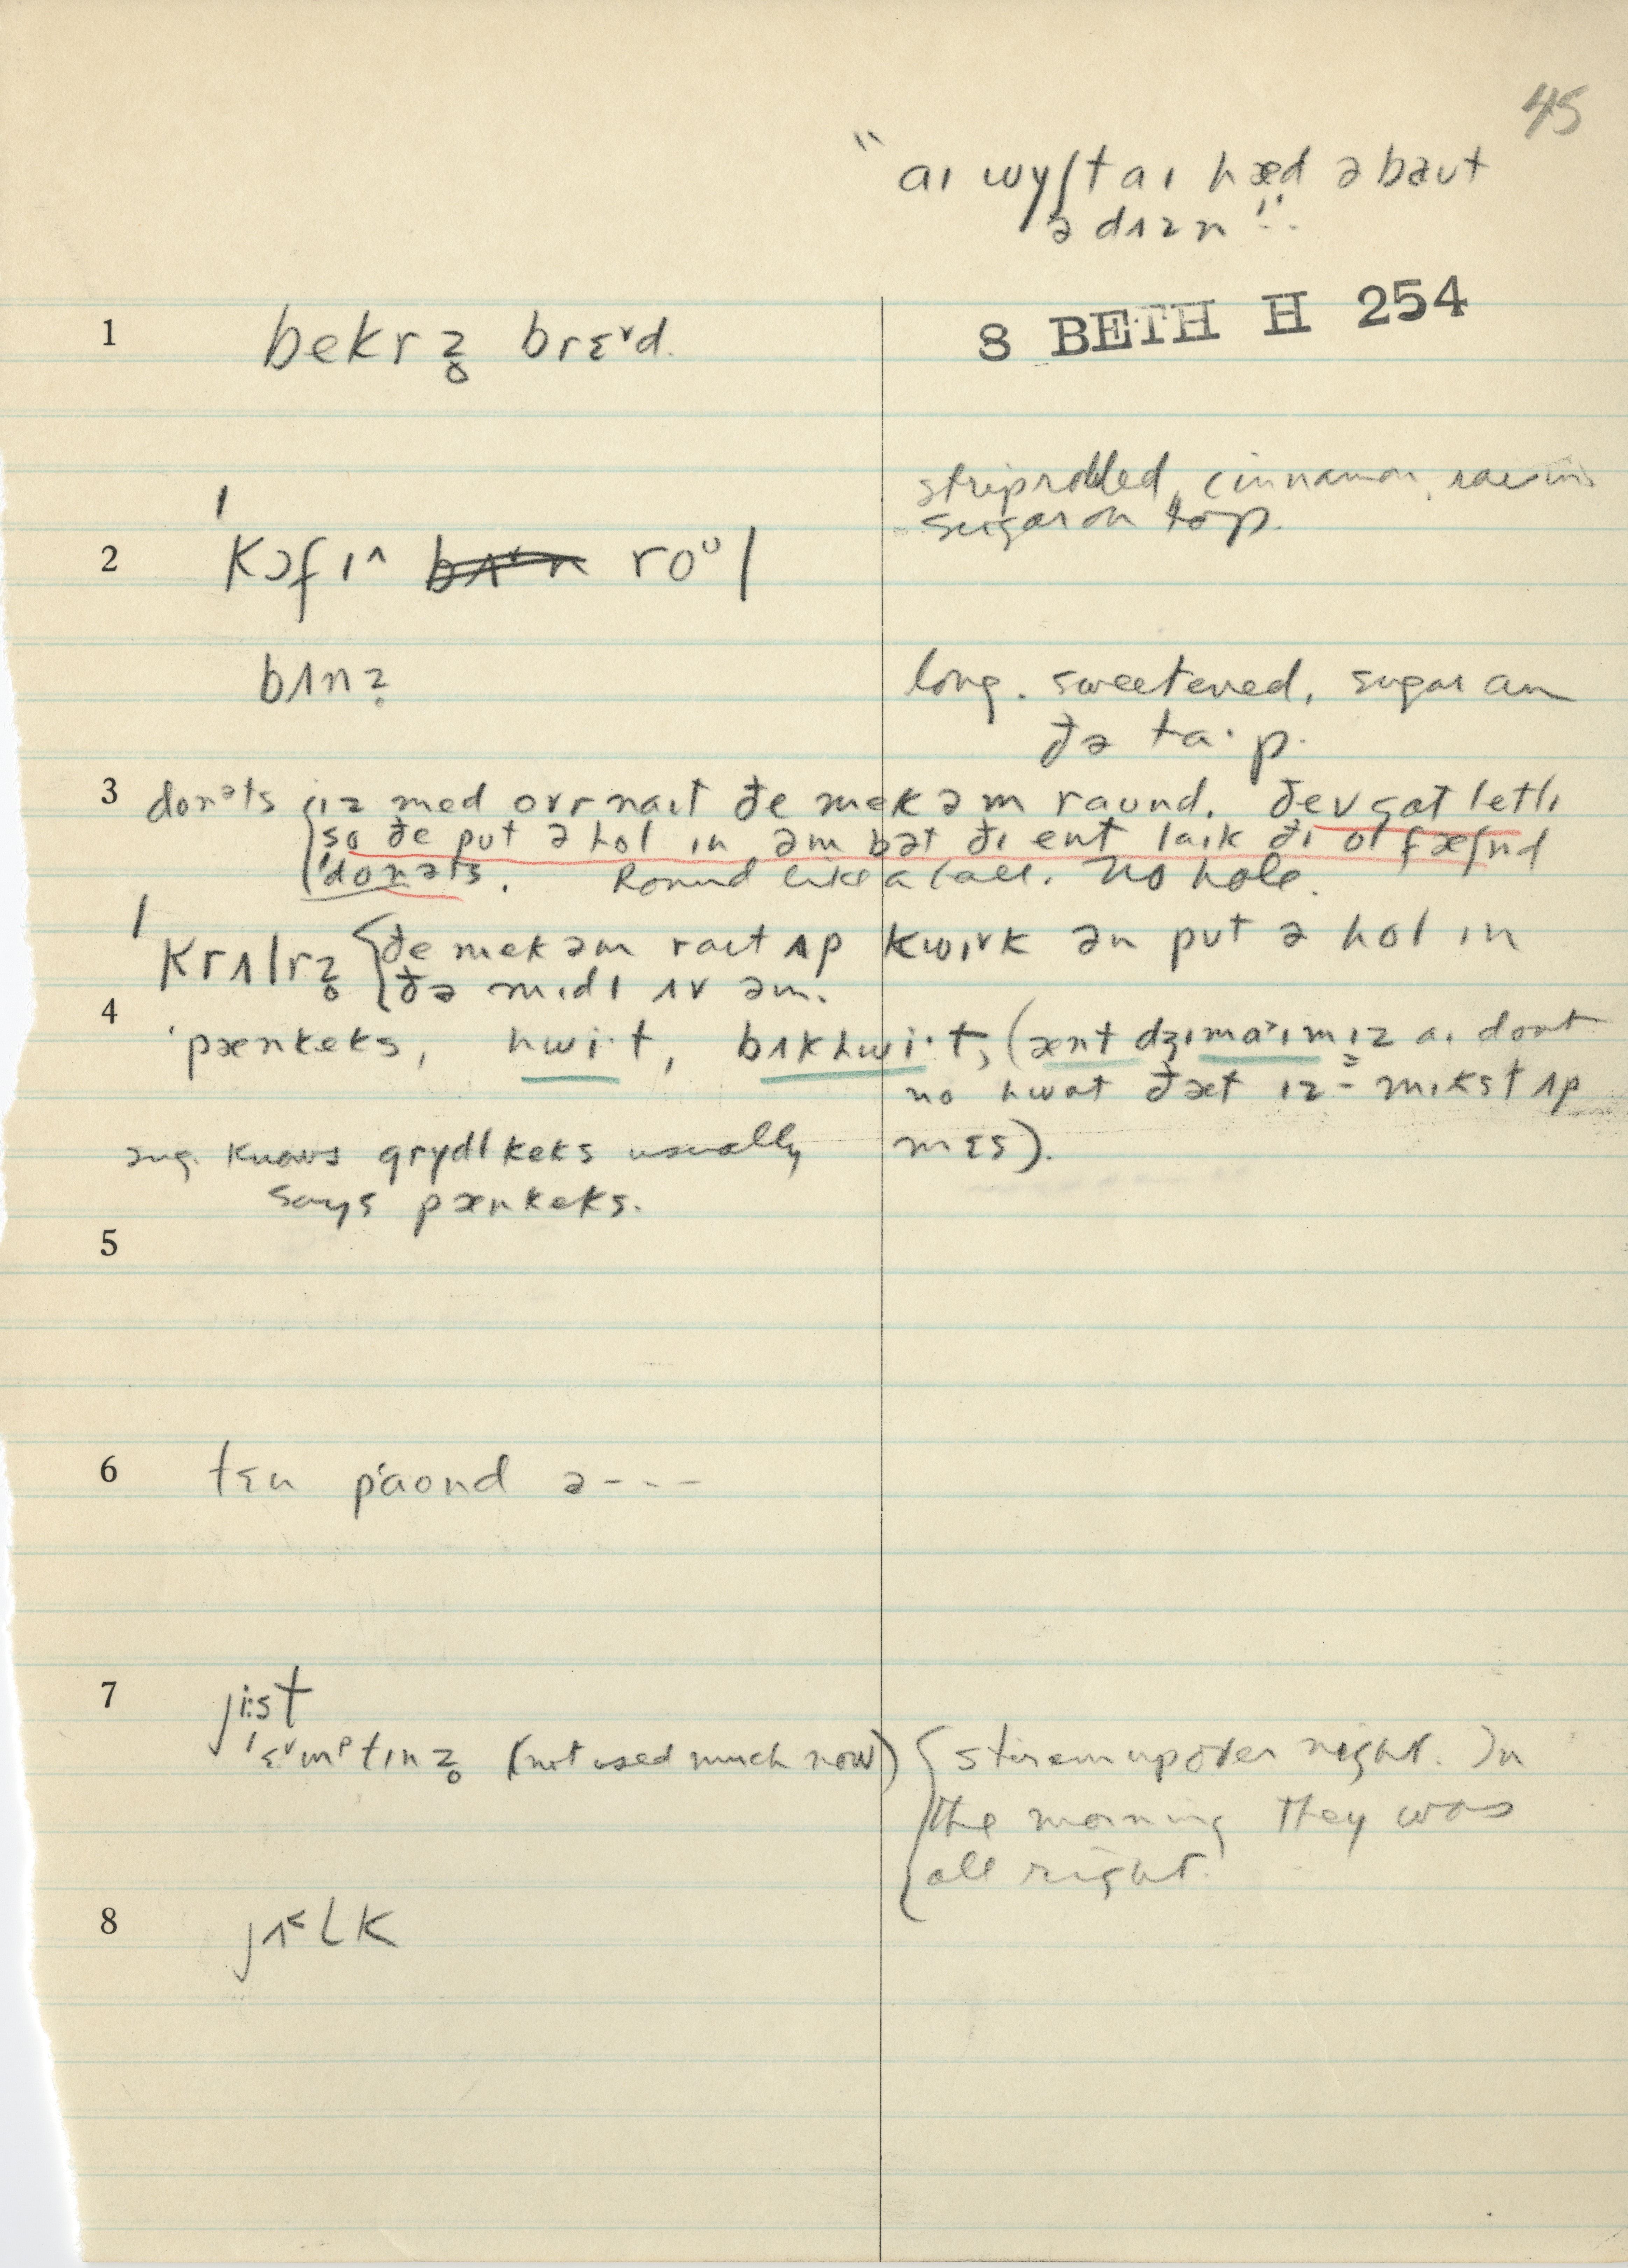 45
"aɪ wyʃt aɪ hæd əbaut
ə dʌzn".
8 BETH H 254
1 bekrz̥ brɛ˅d.
striprolled, cinnamon, raisins
sugar on top.
2 ˈkɔfɪ^ roᶷl
bʌnz̥ long. sweetened, sugar an
ðə ta·p.
3 donəts ɪz med ovrnaɪt ðe mek əm raund. ðev gat letlɪ
so ðe put ə hol ɪn əm bət ðɪ ent laɪk ðɪ ol fæʃnd
ˈdonəts. Round like a ball. No hole.
ˈkrʌlrz̥ {ðe mek əm raɪt ʌp kwɪrk ən put ə hol ɪn
ðə mɪdl ʌv əm.
4 ˈpænkeks, hwi·t, bʌkhwi·t, (ænt dʒɪmaˀɪmɪz aɪ dont
no hwat ðæt ɪz = mɪkst ʌp
knows grɪdlkeks usually mɛs).
says pænkeks.
5
6 tɛn paond ə---
7 ji:st
ˈɛ˅mᵖtɪnz̥ (not used much now) {stir em up over night. In
the morning they was
all right.
8 jʌ˂lk